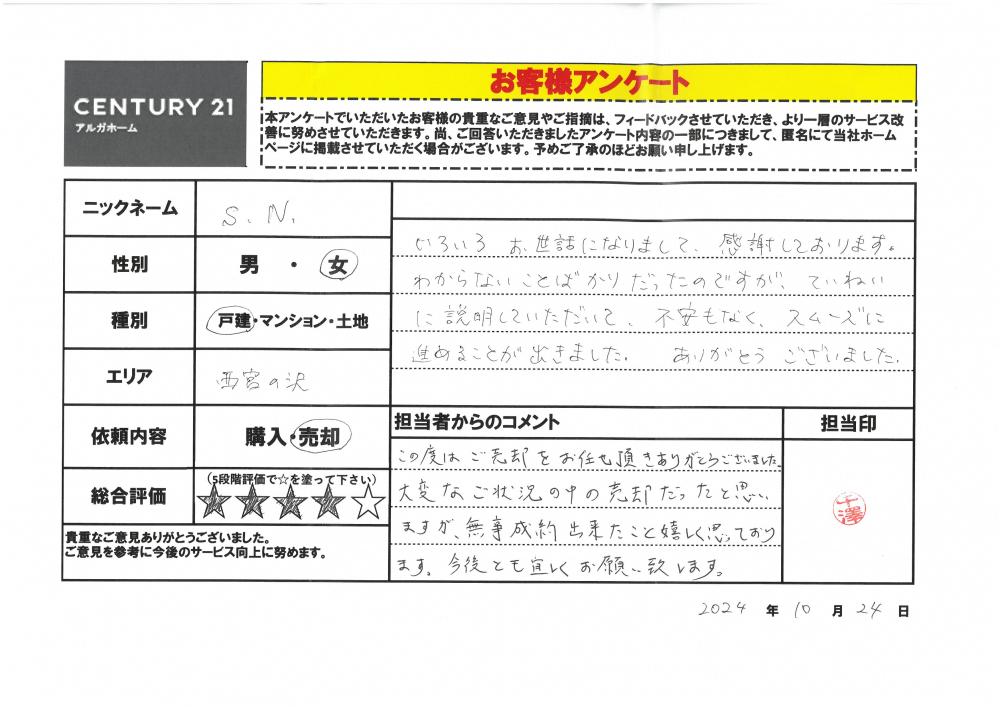 お客様アンケート
CENTURY 21
アルガホーム
本アンケートでいただいたお客様の貴重なご意見やご指摘は、フィードバックさせていただき、より一層のサービス改
善に努めさせていただきます。尚、ご回答いただきましたアンケート内容の一部につきまして、匿名にて当社ホーム
ページに掲載させていただく場合がございます。予めご了承のほどお願い申し上げます。
ニックネーム S. N.
性別 男 ・ 女
種別 戸建・マンション・土地
エリア 西宮の沢
依頼内容 購入・売却
総合評価 (5段階評価で☆を塗って下さい)
★★★★☆
貴重なご意見ありがとうございました。
ご意見を参考に今後のサービス向上に努めます。
いろいろ お世話になりまして、感謝しております。
わからないことばかりだったのですが、ていねい
に説明していただいて、不安もなく、スムーズに
進めることが出きました. ありがとう ございました.
担当者からのコメント
この度は ご売却を お任せ頂きありがとうございました。
大変なご状況の中の売却だったと思い
ますが、無事成約出来たこと嬉しく思っており
ます。今後とも宜しくお願い致します。
担当印
千澤
2024 年 10 月 24 日